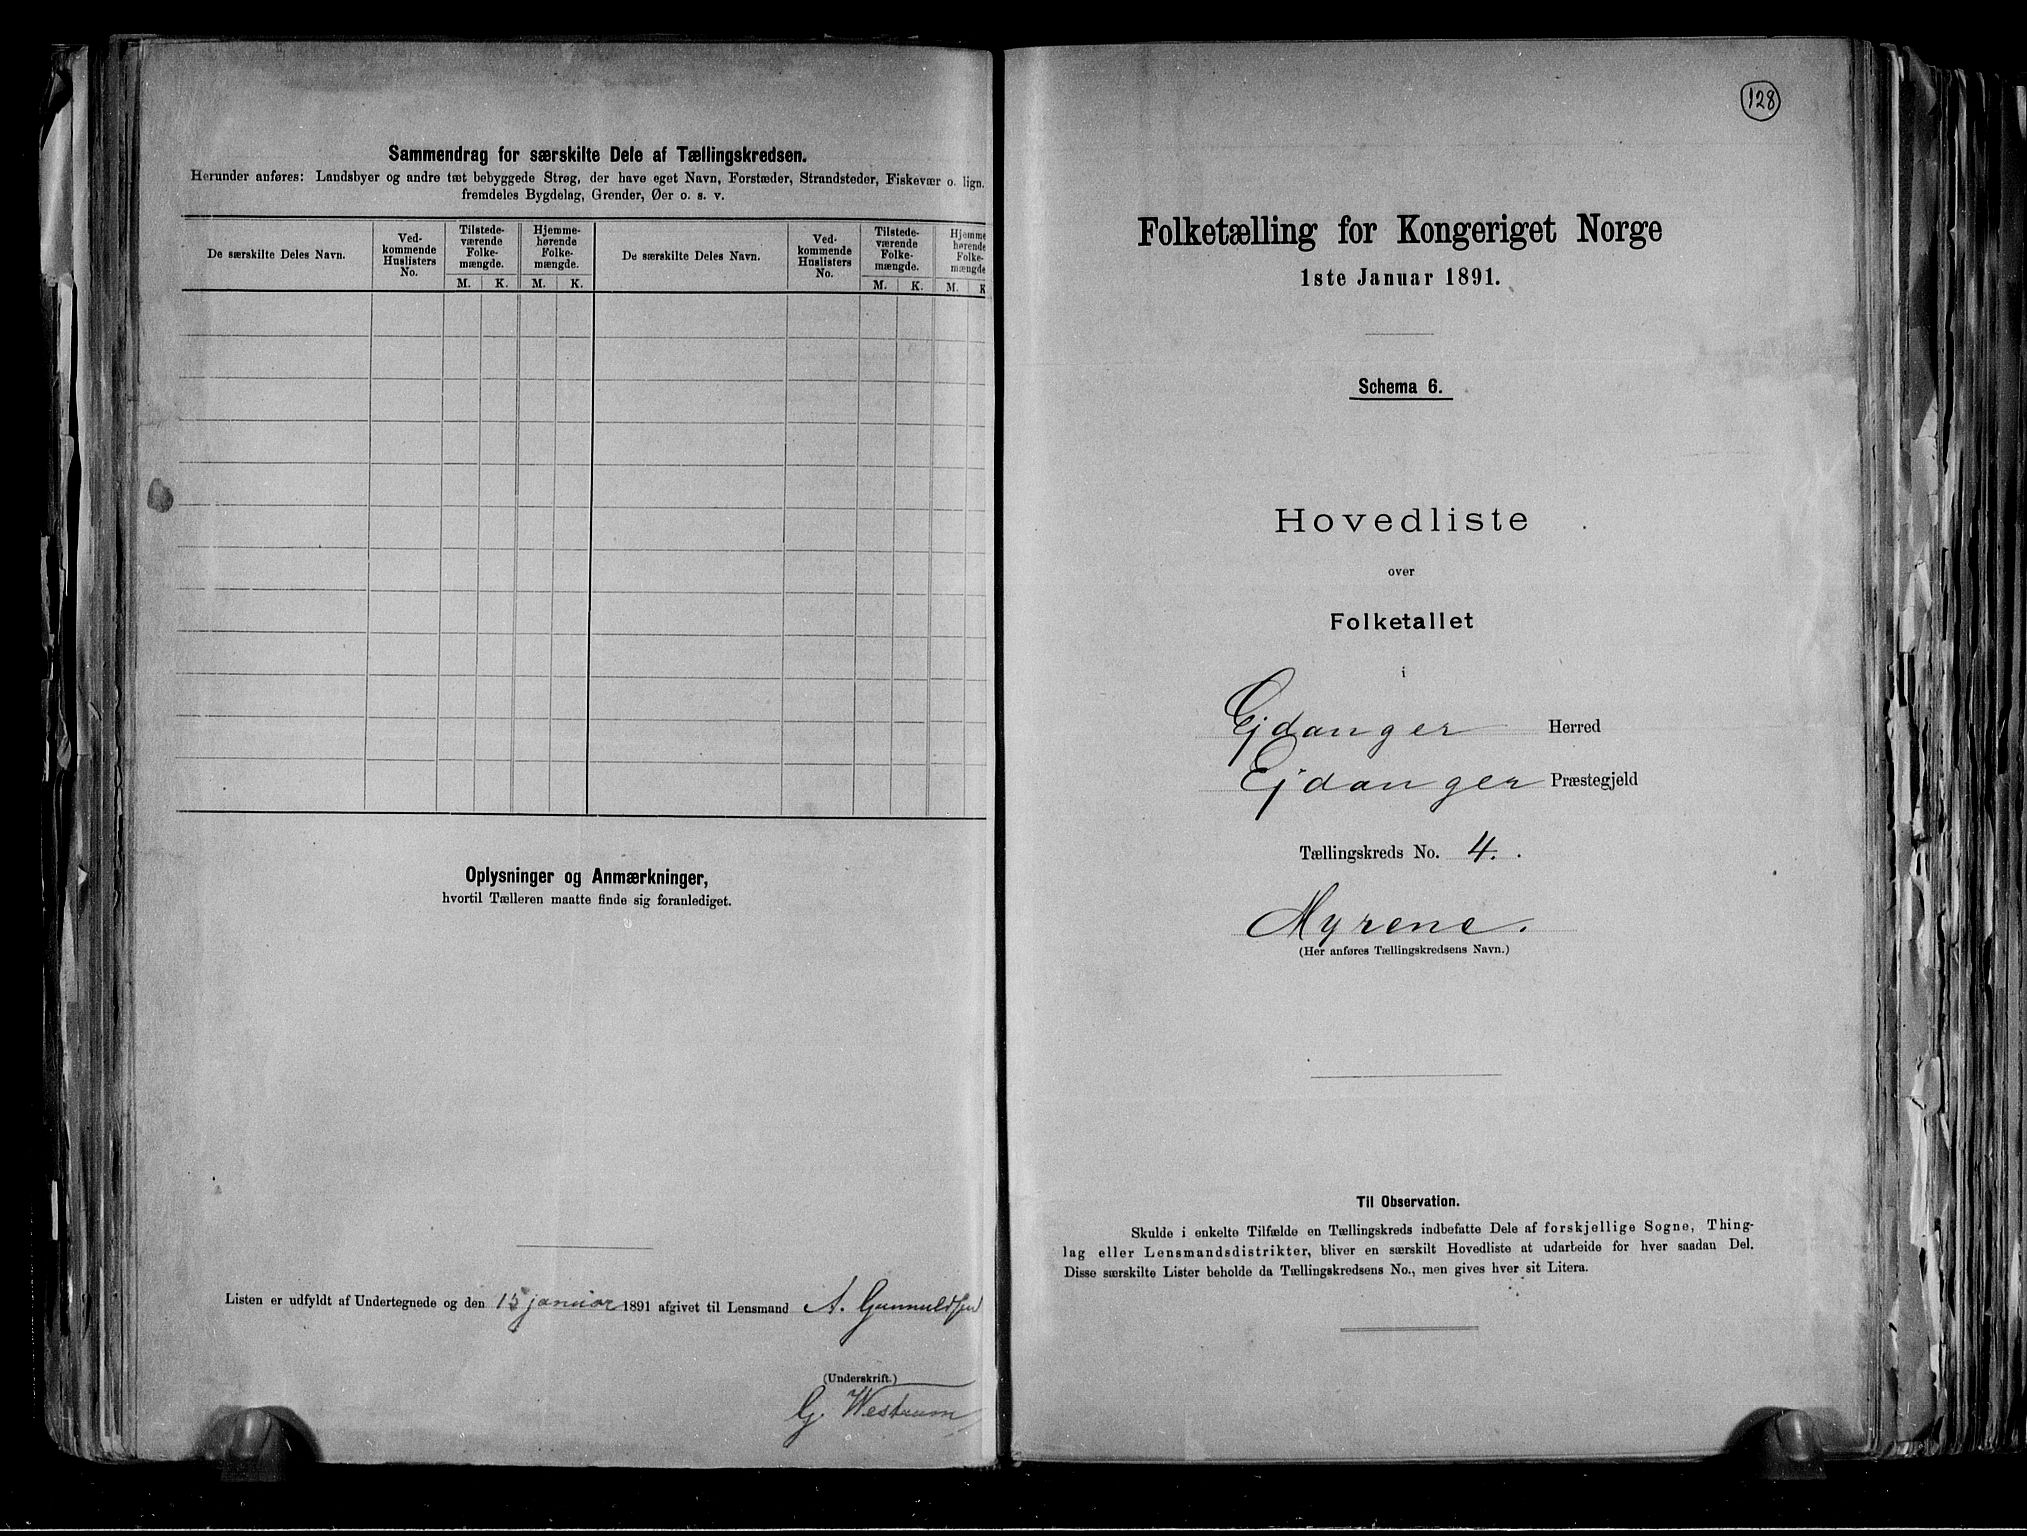 Sammendrag for særskilte Dele af Tællingskredsen.
Herunder anføres: Landsbyer og andre tæt bebyggede Strøg, der have eget Navn, Forstæder, Strandsteder, Fiskevær o. lign.
fremdeles Bygdelag, Grender, Øer o. s. v.
De særskilte Deles Navn.
Ved-
kommende
Huslisters
No.
Tilstede-
værende
Folke-
mængde.
Hjemme-
hørende
Folke-
mængde.
M. K. M. K.
De særskilte Deles Navn.
Ved-
kommende
Huslisters
No.
Tilstede-
værende
Folke-
mængde.
Hjemme
hørende
Folke-
mængde
M. K. M. K
Oplysninger og Anmærkninger,
hvortil Tælleren maatte finde sig foranlediget.
Listen er udfyldt af Undertegnede og den 15 januar 1891 afgivet til Lensmand A. Gunnuldsen
(Underskrift.)
G. Westrum
128
Folketælling for Kongeriget Norge
1ste Januar 1891.
Schema 6.
Hovedliste
over
Folketallet
i
Ejdanger Herred
Ejdanger Præstegjeld
Tællingskreds No. 4.
Myrene.
(Her anføres Tællingskredsens Navn.)
Til Observation.
Skulde i enkelte Tilfælde en Tællingskreds indbefatte Dele af forskjellige Sogne, Thing-
lag eller Lensmandsdistrikter, bliver en særskilt Hovedliste at udarbeide for hver saadan Del.
Disse særskilte Lister beholde da Tællingskredsens No., men gives hver sit Litera.